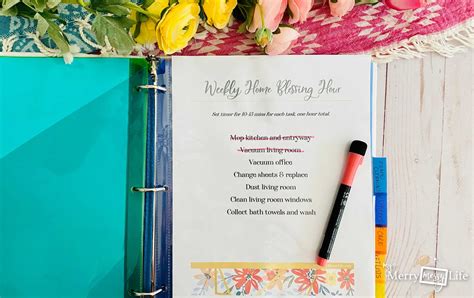 Weekly Home Blessing Hour
Set timer for 10-15 mins for each task, one hour total.
Mop kitchen and entryway
Vacuum living room
Vacuum office
Change sheets & replace
Dust living room
Clean living room windows
Collect bath towels and wash
Merry Messy Life